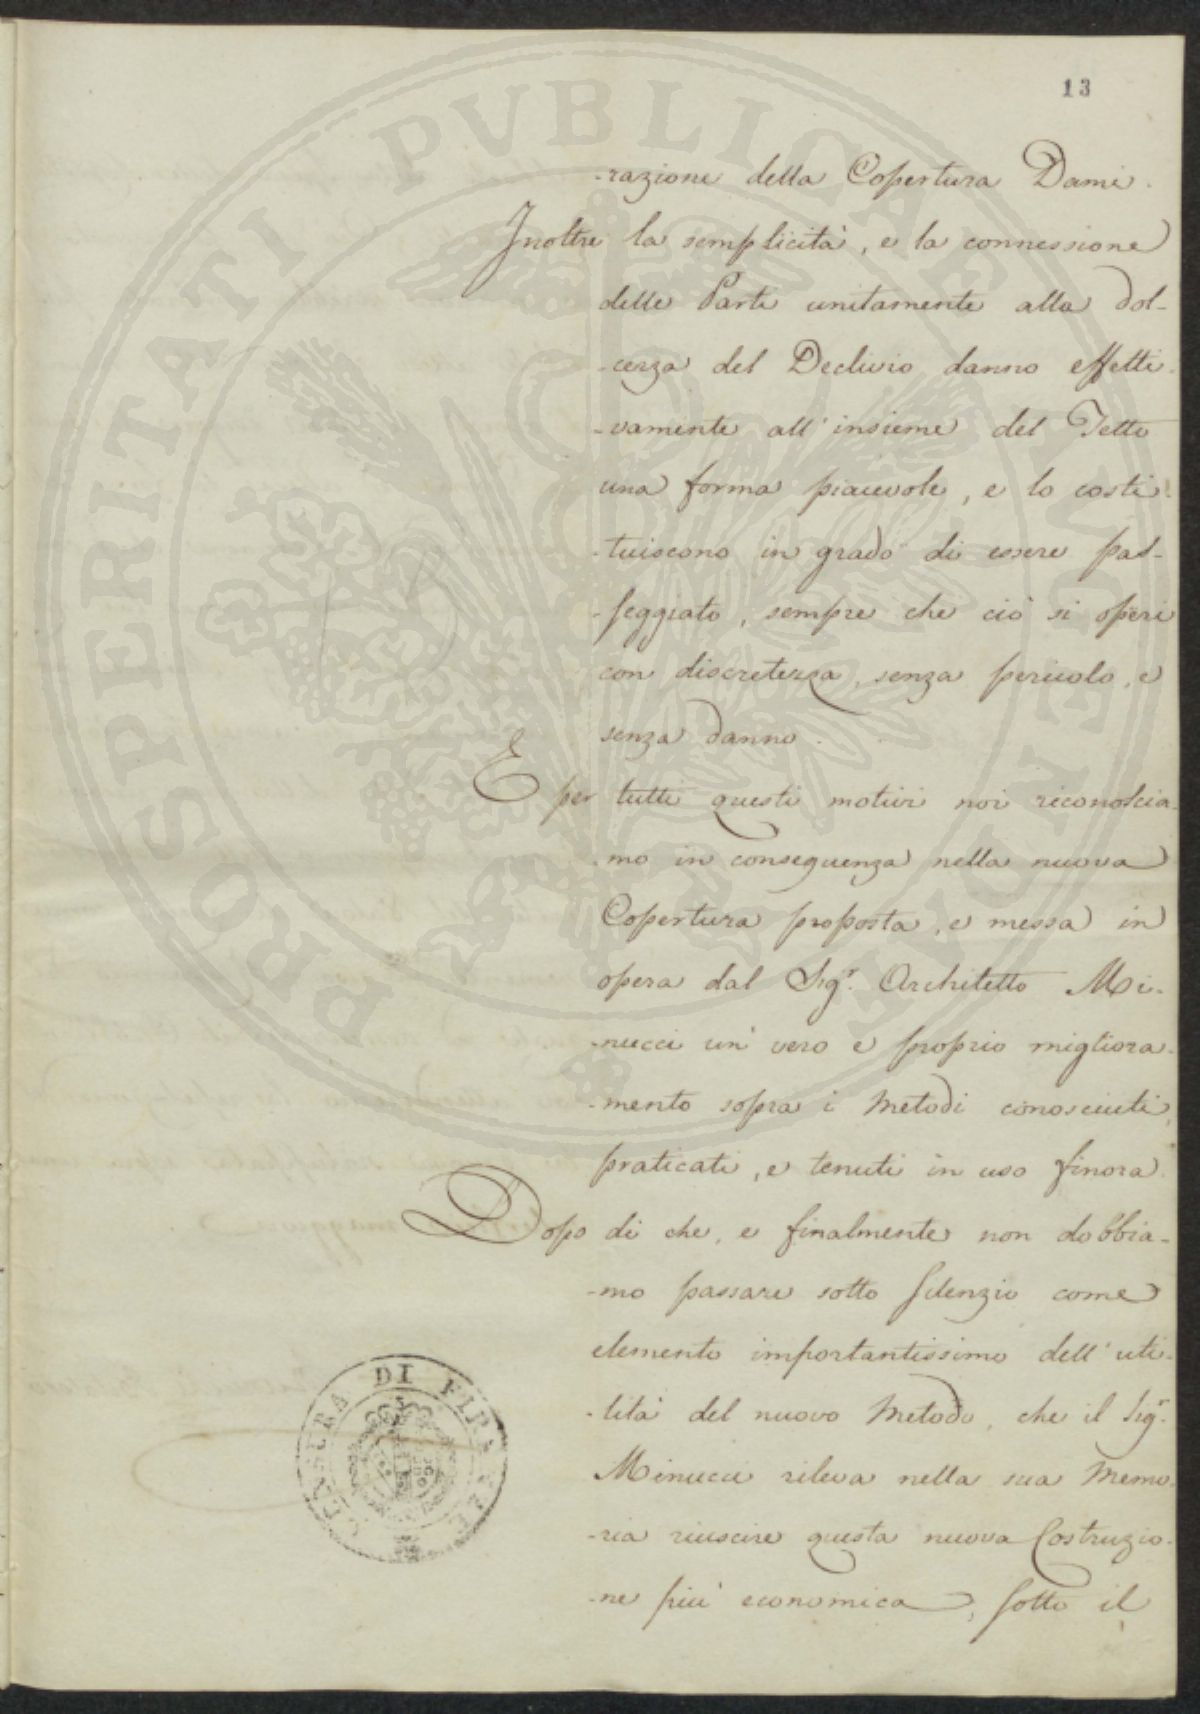 13
-razione della Copertura Dami.
Inoltre la semplicità, e la connessione
delle Parti unitamente alla dol-
-cezza del Declivio danno effetti-
-vamente all' insieme del Tetto
una forma piacevole, e lo costi-
-tuiscono in grado di essere pas-
-seggiato, sempre che ciò si operi
con discretezza, senza pericolo, e
senza danno.
E per tutti questi motivi noi riconoscia-
-mo in conseguenza nella nuova
Copertura proposta, e messa in
opera dal Sigr. Architetto Mi-
-nucci un' vero e proprio migliora-
-mento sopra i Metodi conosciuti,
praticati, e tenuti in uso finora.
Dopo di che, e finalmente non dobbia-
-mo passare sotto silenzio come
elemento importantissimo dell' uti-
-lità del nuovo Metodo, che il Sigr.
Minucci rileva nella sua Memo-
-ria riuscire questa nuova Costruzio-
-ne più economica, sotto il
PROSPERITATI PVBLICAE
DI FIRENZE